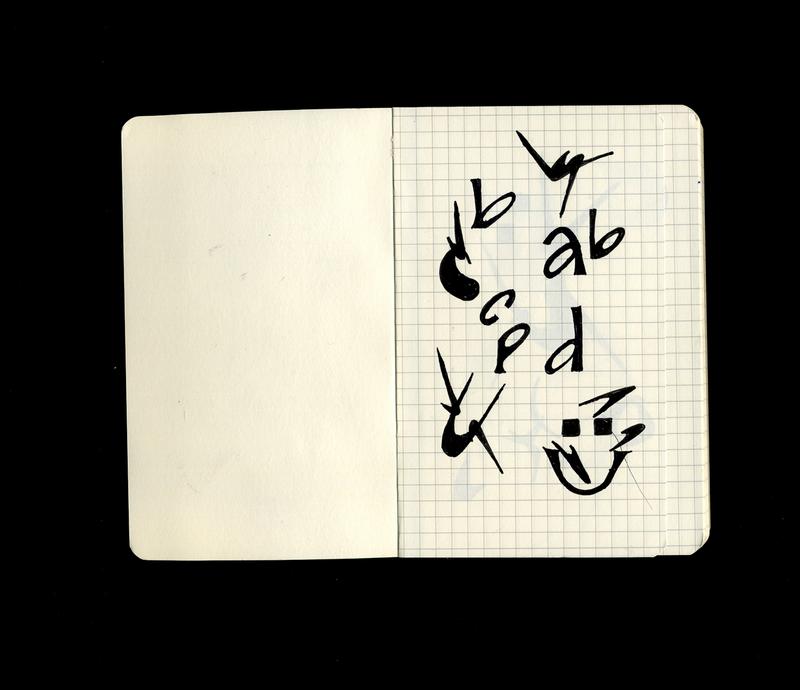 b
ab
c
p
d